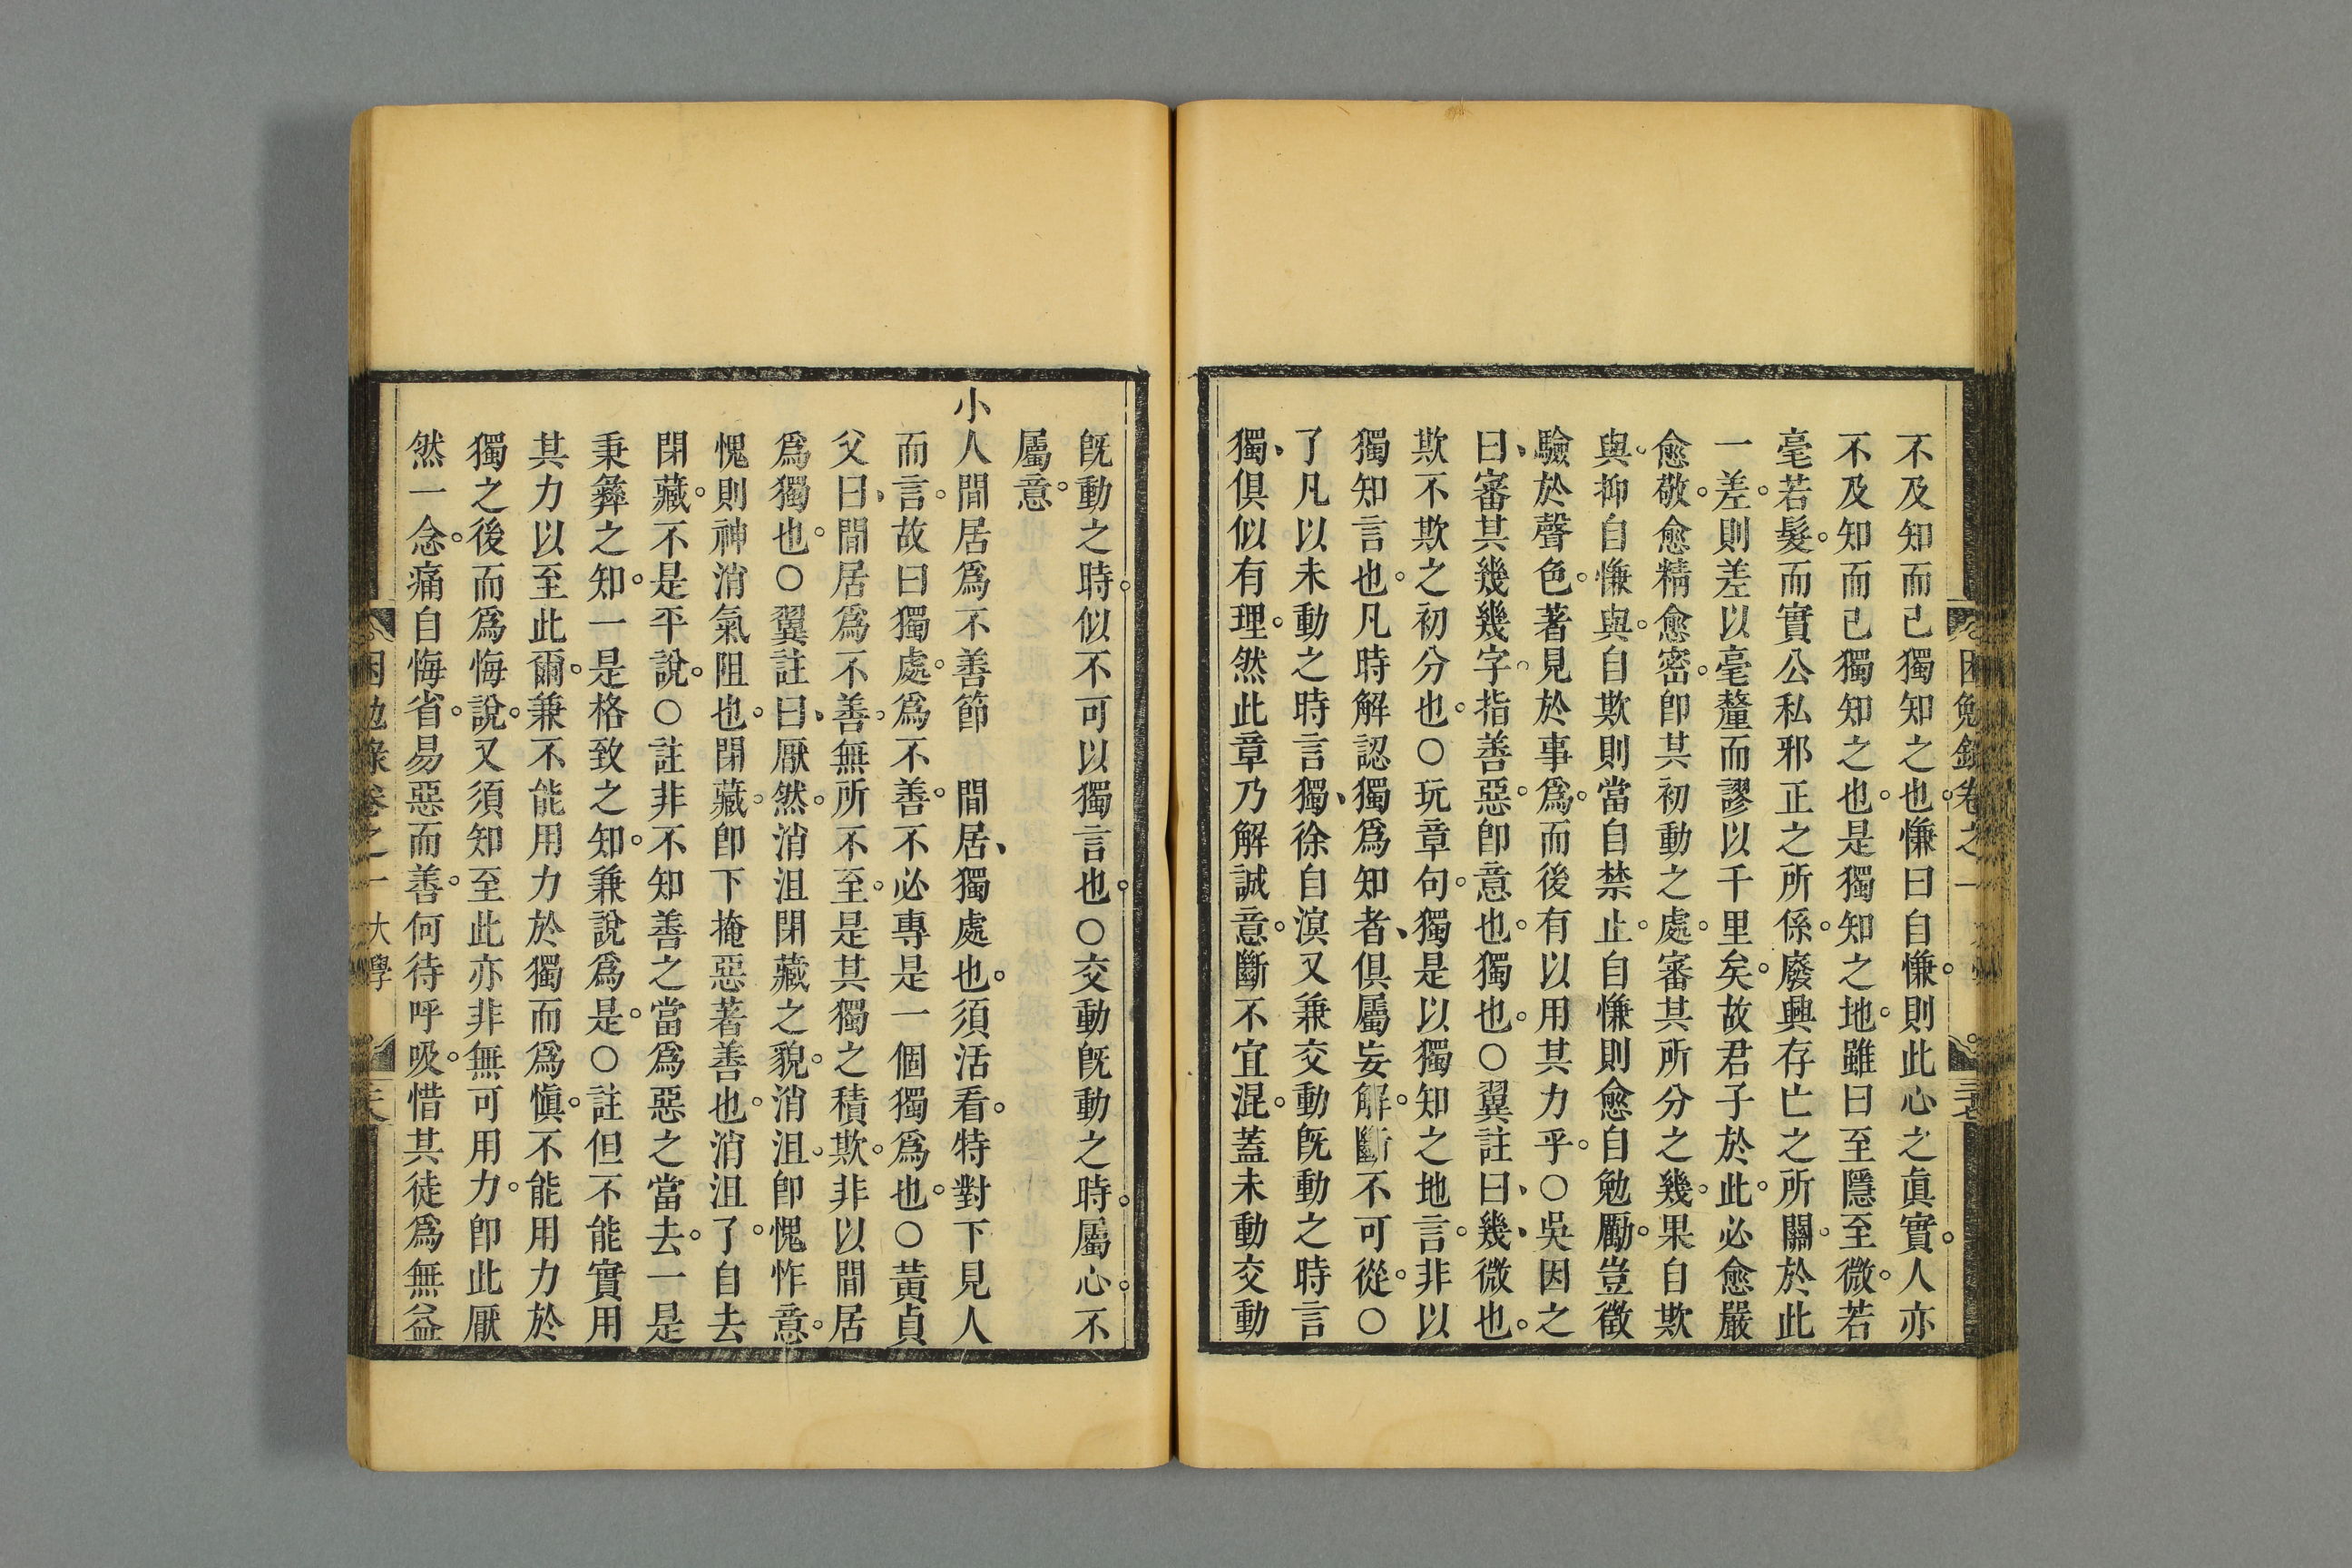 困勉錄卷之一
不及知而己獨知之也。慊曰自慊。則此心之眞實。人亦
不及知而己獨知之也。是獨知之地。雖曰至隱至微。若
毫若髮。而實公私邪正之所係。廢興存亡之所關。於此
一差。則差以毫釐而謬以千里矣。故君子於此。必愈嚴
愈敬。愈精愈密。卽其初動之處。審其所分之幾。果自欺
與。抑自慊與。自欺則當自禁止。自慊則愈自勉勵。豈徵
驗於聲色。著見於事爲。而後有以用其力乎。○吳因之
曰、審其幾幾字。指善惡。卽意也。獨也。○翼註曰、幾、微也。
欺不欺之初分也。○玩章句。獨是以獨知之地言。非以
獨知言也。凡時解認獨爲知者、俱屬妄解。斷不可從。○
了凡以未動之時言獨、徐自溟又兼交動旣動之時言
獨、俱似有理。然此章乃解誠意。斷不宜混。蓋未動交動
旣動之時。似不可以獨言也。○交動旣動之時。屬心。不
屬意。
小人閒居爲不善節　閒居、獨處也。須活看。特對下見人
而言。故曰獨處。爲不善。不必專是一個獨爲也。○黃貞
父曰、閒居爲不善。無所不至。是其獨之積欺。非以閒居
爲獨也。○翼註曰、厭然。消沮閉藏之貌。消沮。卽愧怍意。
愧則神消氣阻也。閉藏。卽下掩惡著善也。消沮了。自去
閉藏。不是平說。○註非不知善之當爲惡之當去。一是
秉彝之知。一是格致之知。兼說爲是。○註但不能實用
其力以至此爾。兼不能用力於獨而爲愼。不能用力於
獨之後而爲悔說。又須知至此亦非無可用力。卽此厭
然一念。痛自悔省。易惡而善。何待呼吸。惜其徒爲無益
困勉錄卷之一　大學